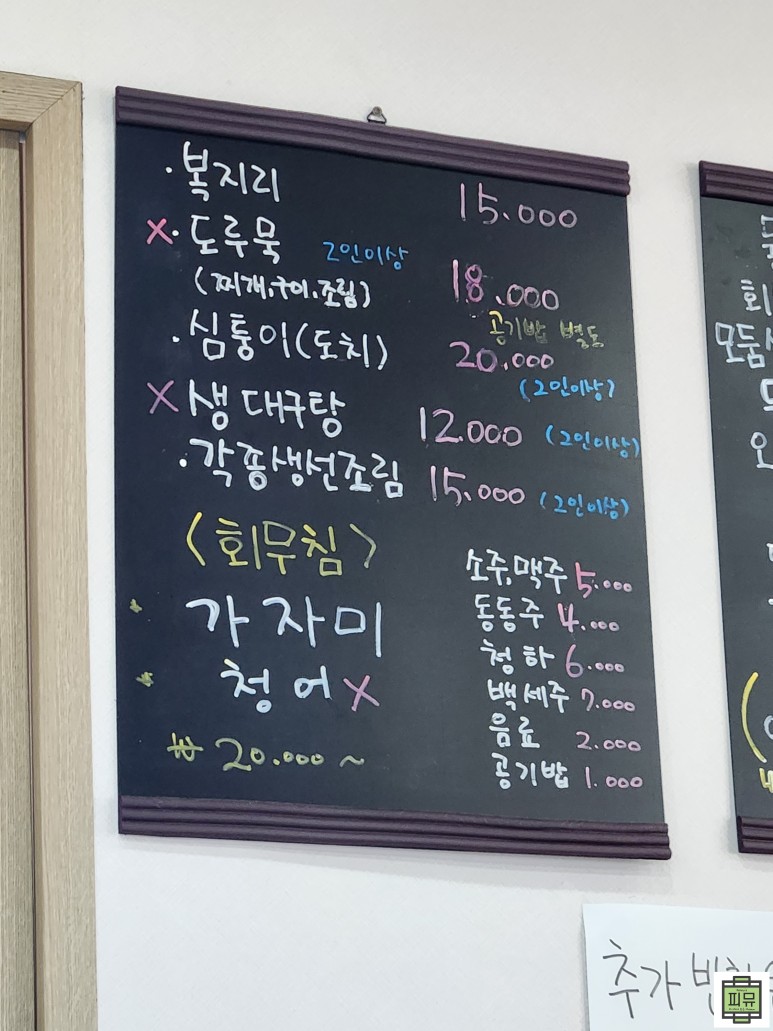 ·복지리 15.000
X·도루묵 2인이상
(찌개.구이.조림) 18.000
공기밥 별도
·심퉁이(도치) 20.000
(2인이상)
X 생대구탕 12.000 (2인이상)
·각종생선조림 15.000 (2인이상)
<회무침>
가자미
청어 X
₩20.000~
소주,맥주 5.000
동동주 4.000
청하 6.000
백세주 7.000
음료 2.000
공기밥 1.000
회
모둠
추가
피뮤